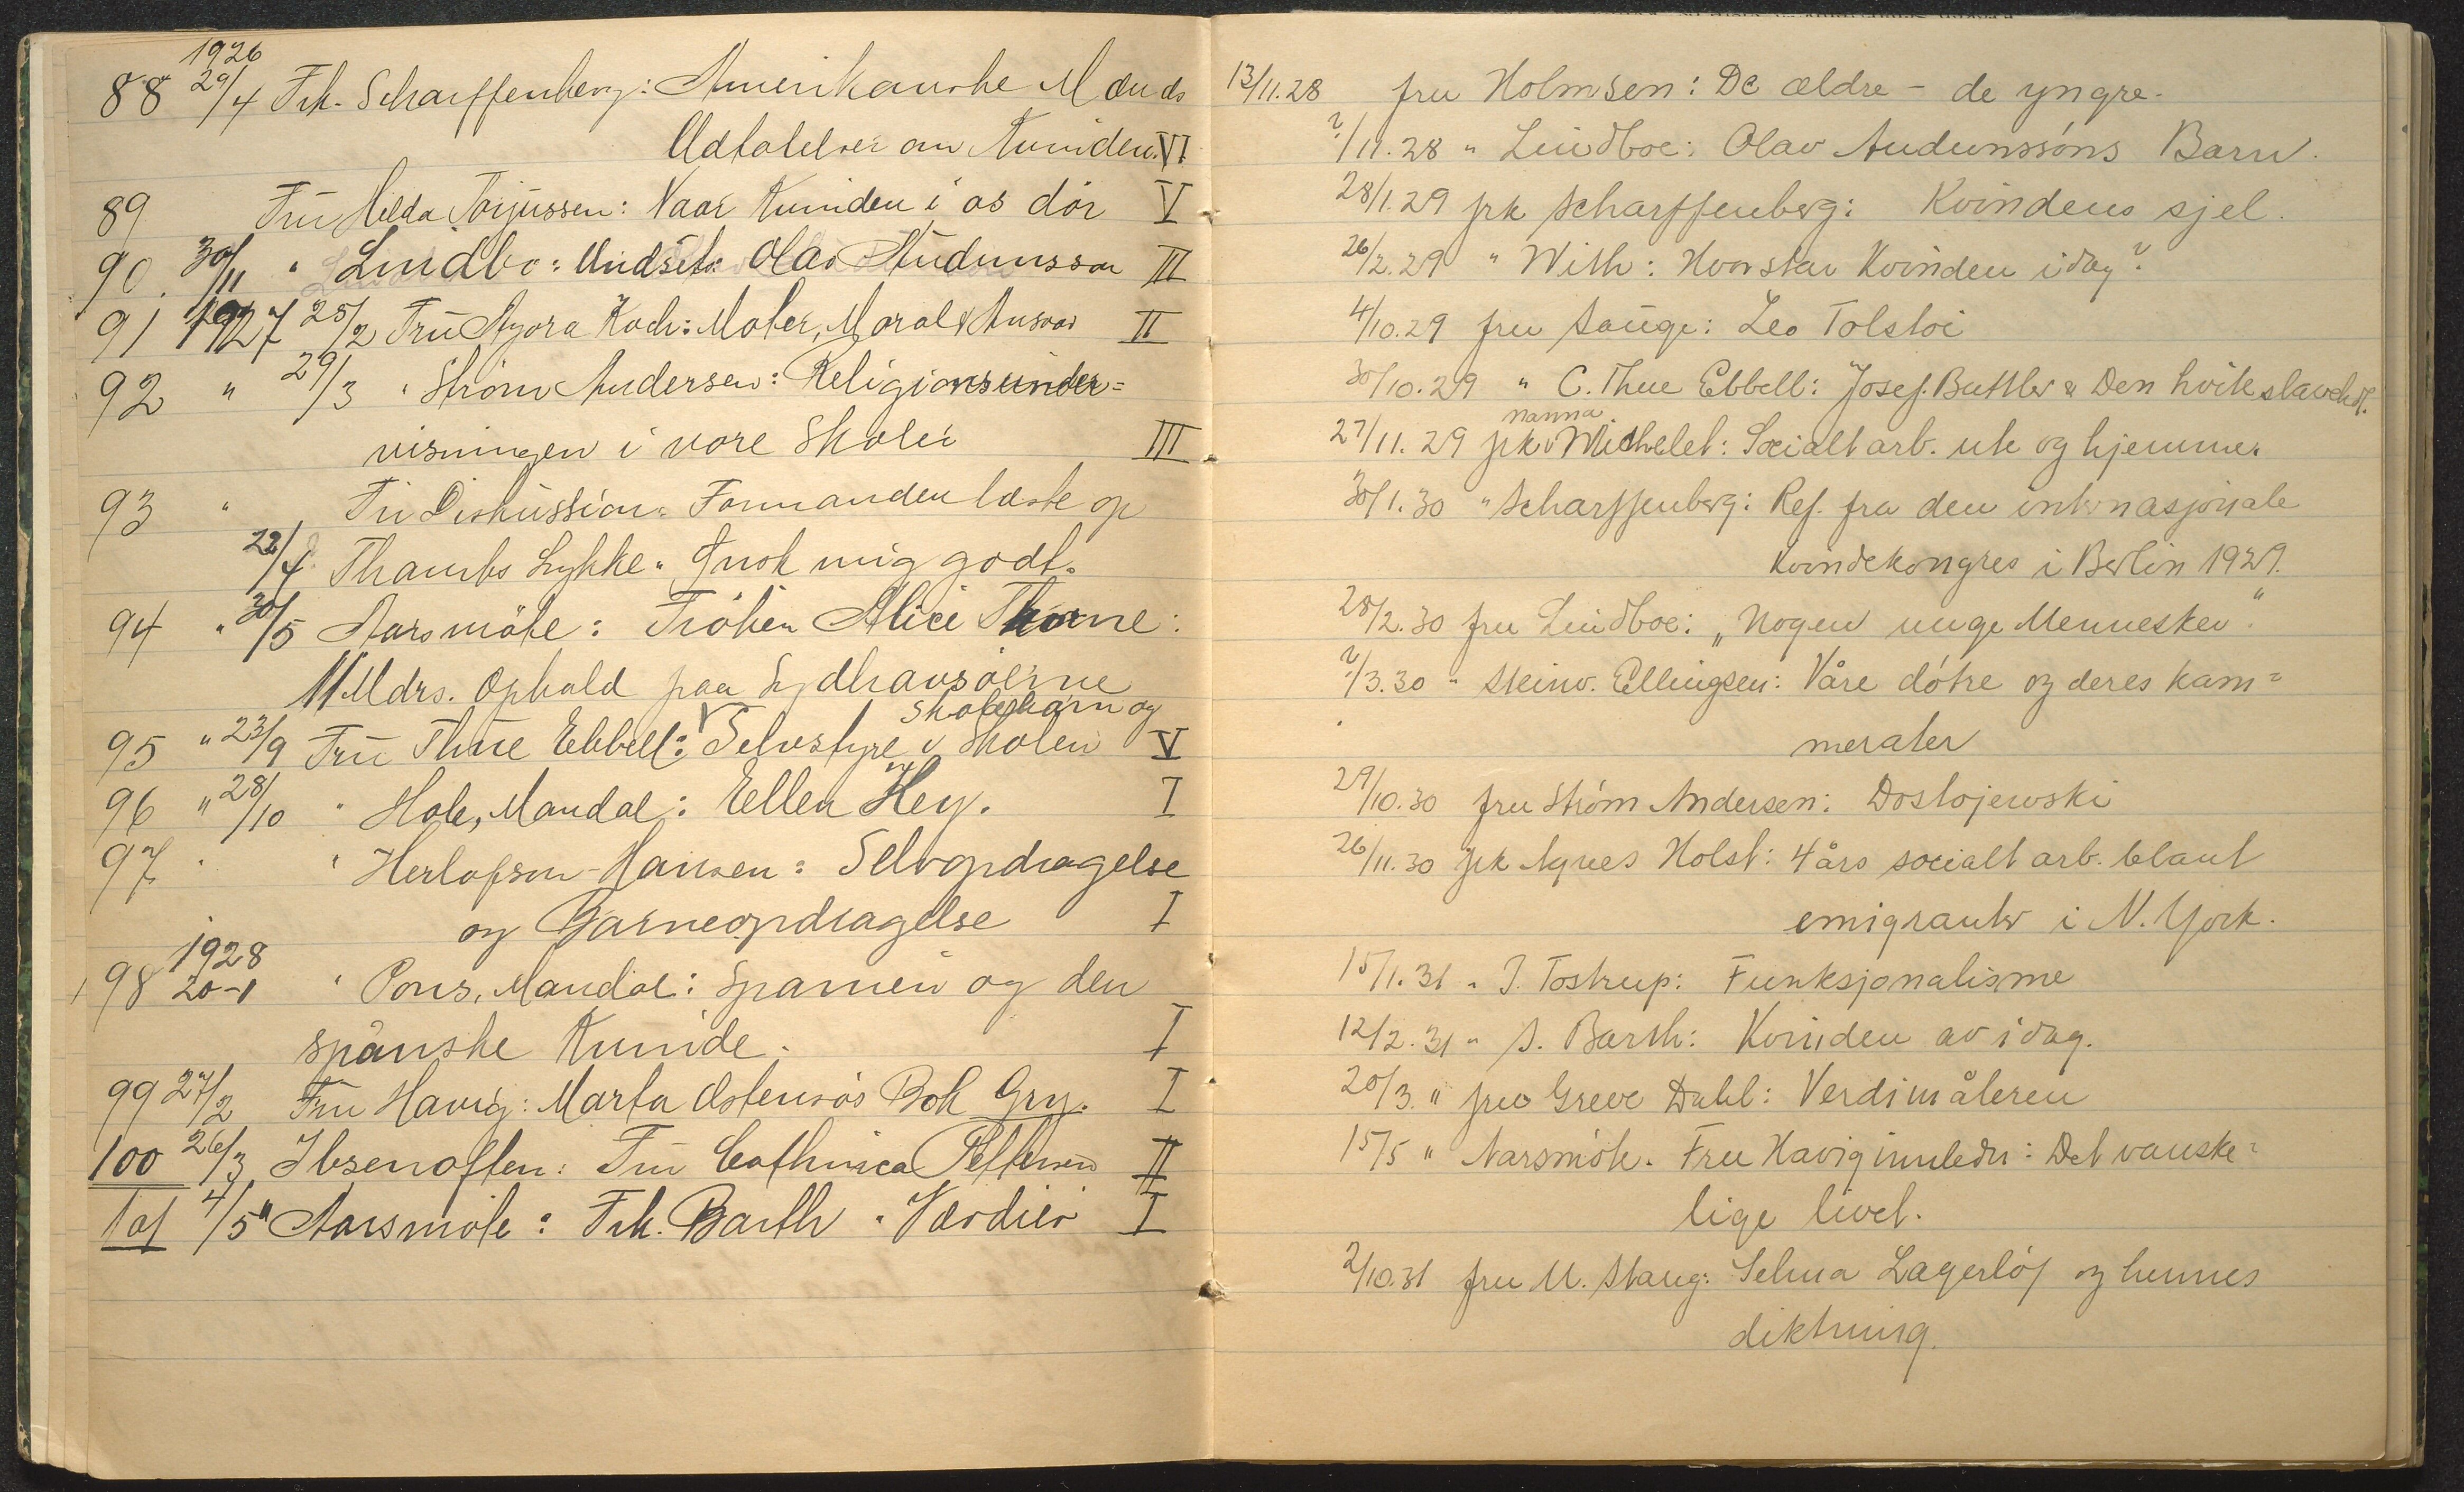 1926
88 29/4 Frk. Scharffenberg: Amerikanske Mænds
Udtalelser om Kvinden. VI
89 Fru Hilda Torjussen: Naar Kvinden i os dör V
90. 30/11 " Lindbo: Undsets Olav Audunsson III
91 1927 25/2 Fru Agora Koch: Moter, Moral & Ansvar II
92 " 29/3 " Ström Andersen: Religionsunder=
visningen i vore Skoler III
93 " Fri Diskussion. Formanden læste op
22/4 Thambs Lykke. Gnok mig godt.
94 " 30/5 Aarsmöte: Fröken Alice Thorne:
11 Mdrs. Ophold paa Sydhavsöerne
Skolebarn og
95 " 23/9 Fru Thue Ebbell: Selvstyre i Skolen V
96 " 28/10 " Hole, Mandal: Ellen Key. I
97 " " Herlofson-Hansen: Selvopdragelse
og Barneopdragelse I
1928
98 20-1 " Pons, Mandal: Spanien og den
spanske Kvinde. I
99 27/2 Fru Havig: Marta Ostensös Bok Gry. I
100 26/3 Ibsenaften: Fru Cathinca Pettersen II
101 4/5 " Aarsmöte: Frk. Barth. Værdier I
13/11.28 fru Holmsen: De ældre - de yngre.
?/11.28 " Lindboe: Olav Audunssóns Barn.
28/1.29 frk Scharffenberg: Kvindens sjel.
26/2.29 " With: Hvor star Kvinden idag?
4/10.29 fru Sauge: Leo Tolstoi
30/10.29 " C. Thue Ebbell: Josef. Buttler & Den hvite slavehdl.
nanna
27/11.29 frk. Michelet: Socialt arb. ute og hjemme.
30/1.30 " Scharffenberg: Ref. fra den internasjonale
Kvindekongres i Berlin 1929.
28/2.30 fru Lindboe: "Nogen unge Mennesker."
?/3.30 " Steinv. Ellingsen: Våre dótre og deres kam=
merater
29/10.30 fru Stróm Andersen: Dostojewski
26/11.30 frk Agnes Holst: 4 års socialt arb. blant
emigranter i N. York.
15/1.31 " J. Tostrup: Funksjonalisme
12/2.31 " S. Barth: Kvinden av idag.
20/3. " fru Greve Dahl: Verdimåleren
15/5 " Aarsmóte. Fru Havig innleder: Det vanske=
lige livet.
2/10.31 fru M. Stang: Selma Lagerlóf og hennes
diktning.